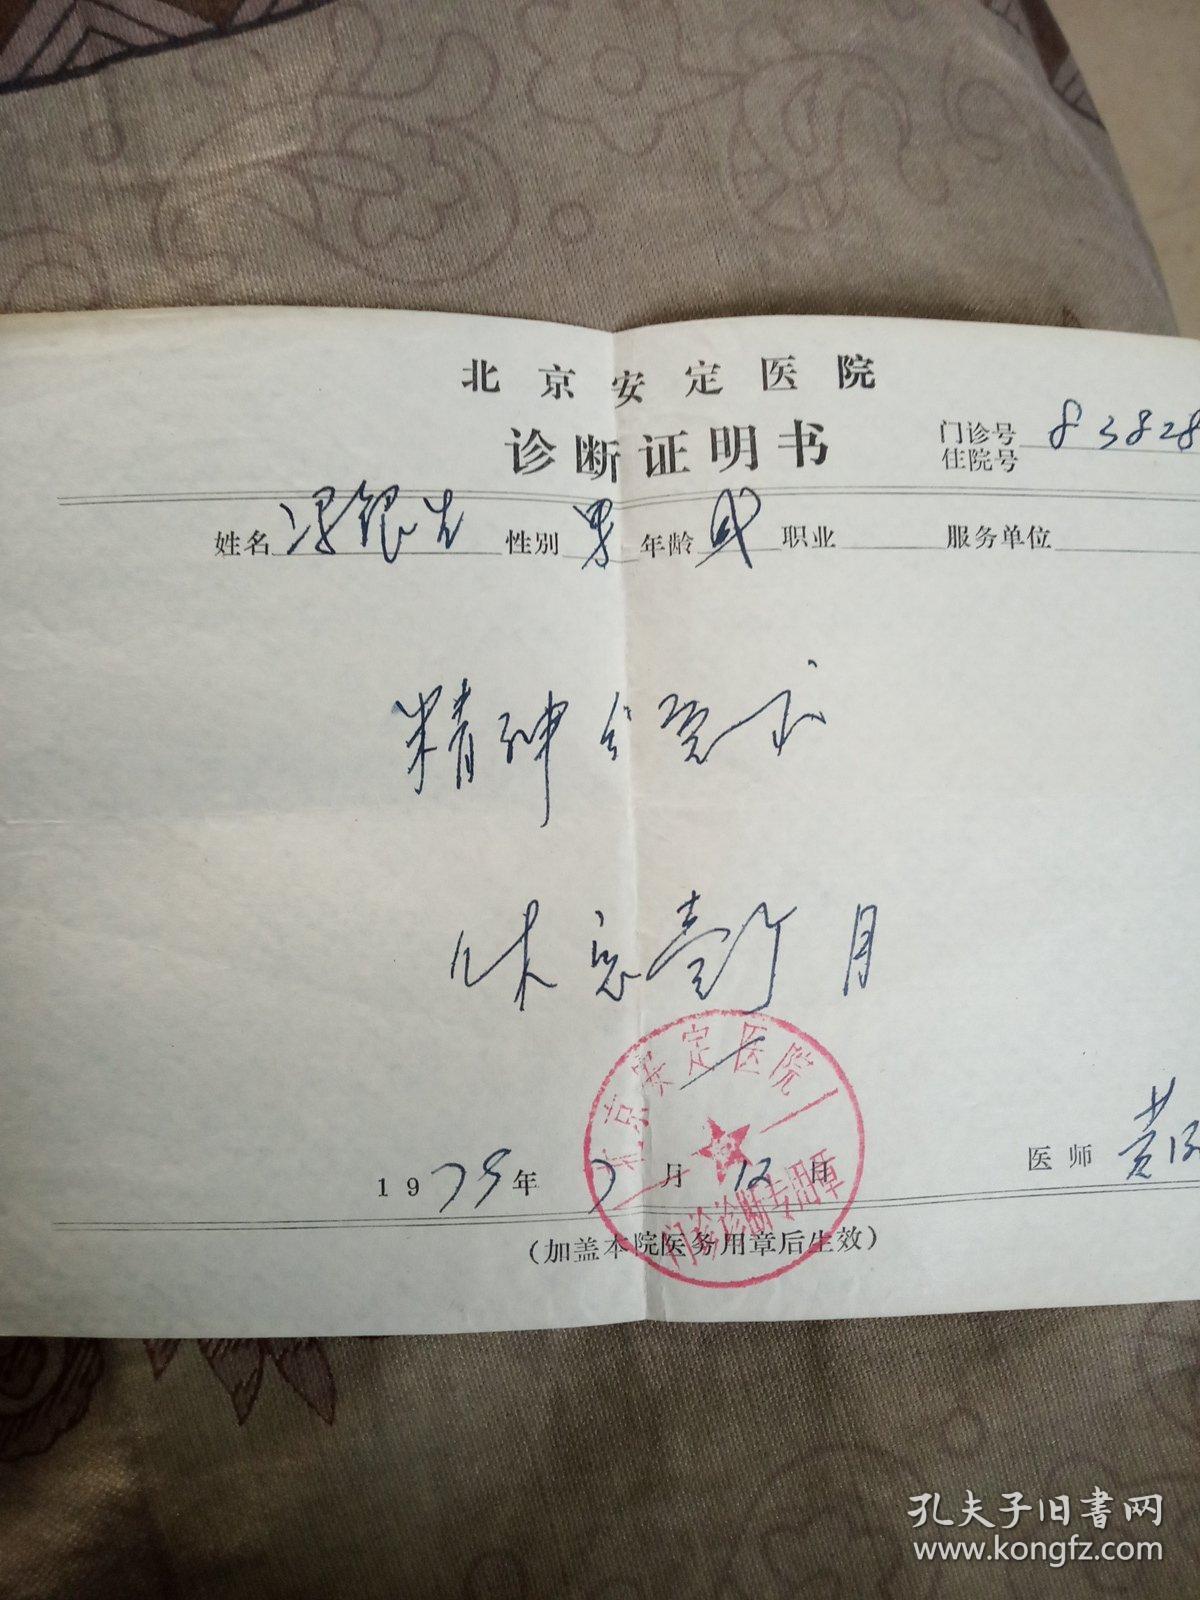 北京安定医院
诊断证明书
门诊号 83828
住院号
姓名 冯银生 性别 男 年龄 成 职业 服务单位
精神分裂症
休息壹个月
北京安定医院
门诊诊断专用章
1979年 7月 12日
医师 黄
(加盖本院医务用章后生效)
孔夫子旧书网
www.kongfz.com